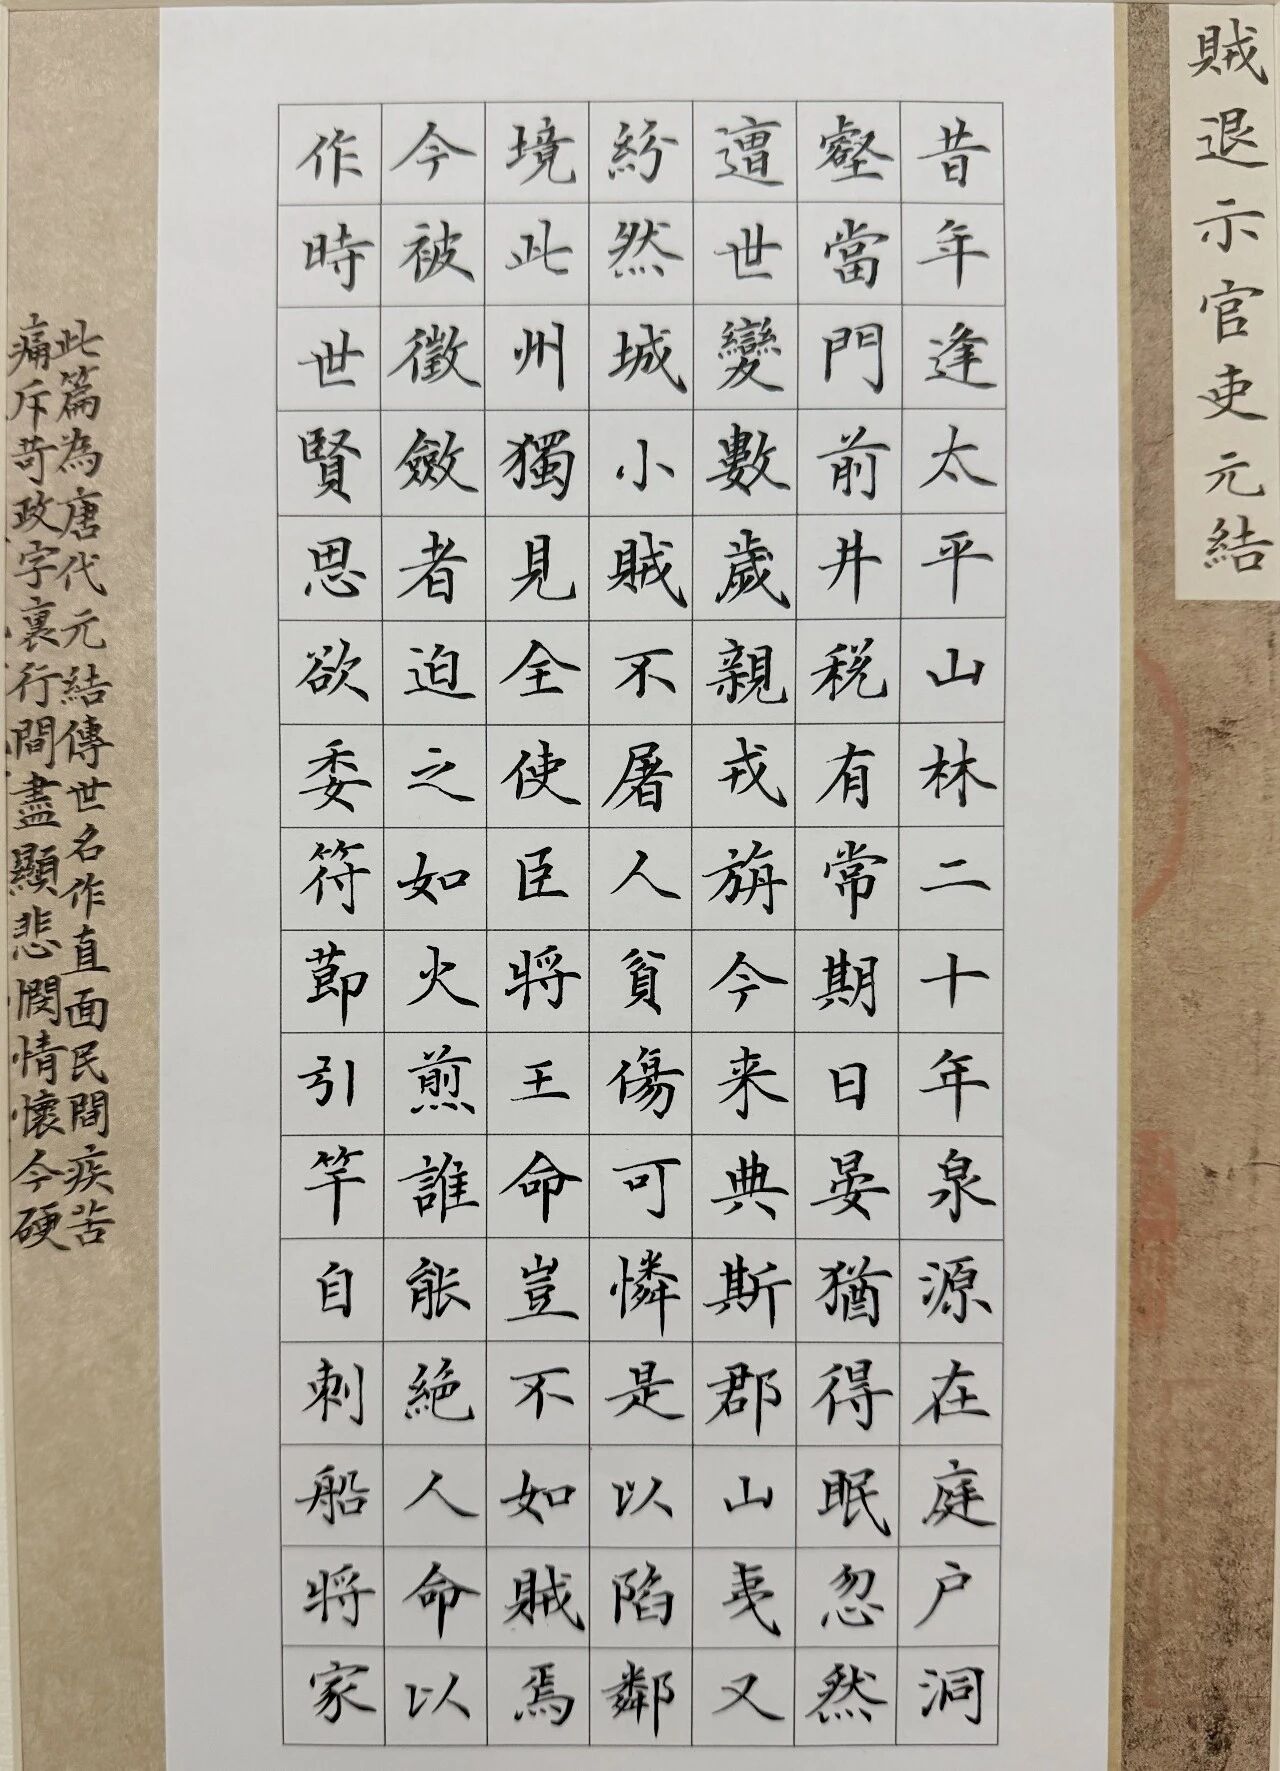 賊退示官吏元結
昔年逢太平山林二十年泉源在庭户洞
壑當門前井税有常期日晏猶得眠忽然
遭世變數歲親戎旃今来典斯郡山夷又
紛然城小賊不屠人貧傷可憐是以陷鄰
境此州獨見全使臣將王命豈不如賊焉
今被徵斂者迫之如火煎誰能絕人命以
作時世賢思欲委符節引竿自刺船將家
此篇為唐代元結傳世名作直面民間疾苦
痛斥苛政字裏行間盡顯悲憫情懷今硬